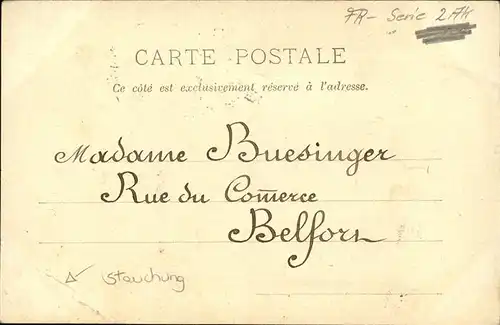 FR- Serie 2.Ak
CARTE POSTALE
Ce côté est exclusivement réservé à l'adresse.
Madame Buesinger
Rue du Com̅erce
Belfort
Stauchung